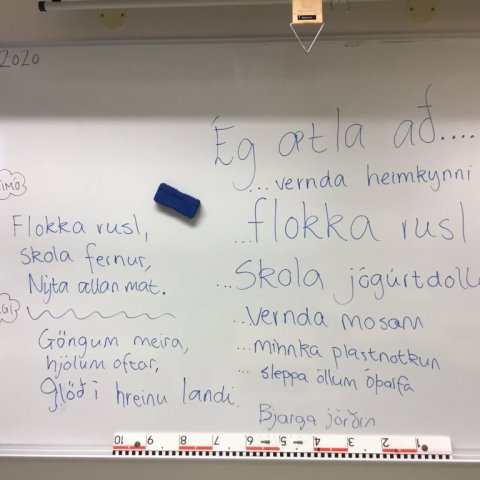 2020
Flokka rusl,
skola fernur,
Nýta allan mat.
Göngum meira,
hjólum oftar,
glöð í hreinu landi.
Ég ætla að....
...vernda heimkynni
...flokka rusl
...Skola jógúrtdoll
...vernda mosann
...mihnka plastnotkun
... sleppa öllum óþarfa
Bjarga jörðin
10 9 8 7 6 5 4 3 2 1